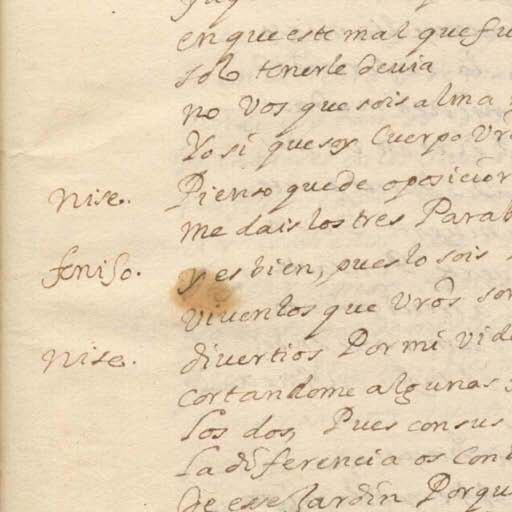 en que este mal que fu
solo tenerle deuia
no vos que sois alma
Yo si que soy Cuerpo Vrō
Nise. Pienso que de oposicion
me dais los tres Parab
feniso. y es bien, pues lo sois
viuen los que Vrōs son
Nise. diuertios Por mi vida
cortandome algunas
los dos, Pues con sus
la diferencia os con
de ese Jardin Porqu